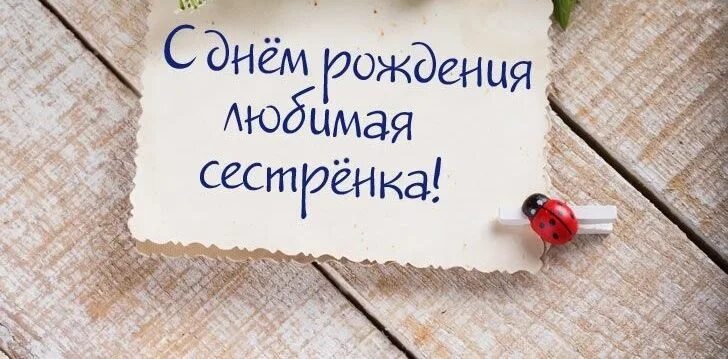 С днём рождения
любимая
сестрёнка!